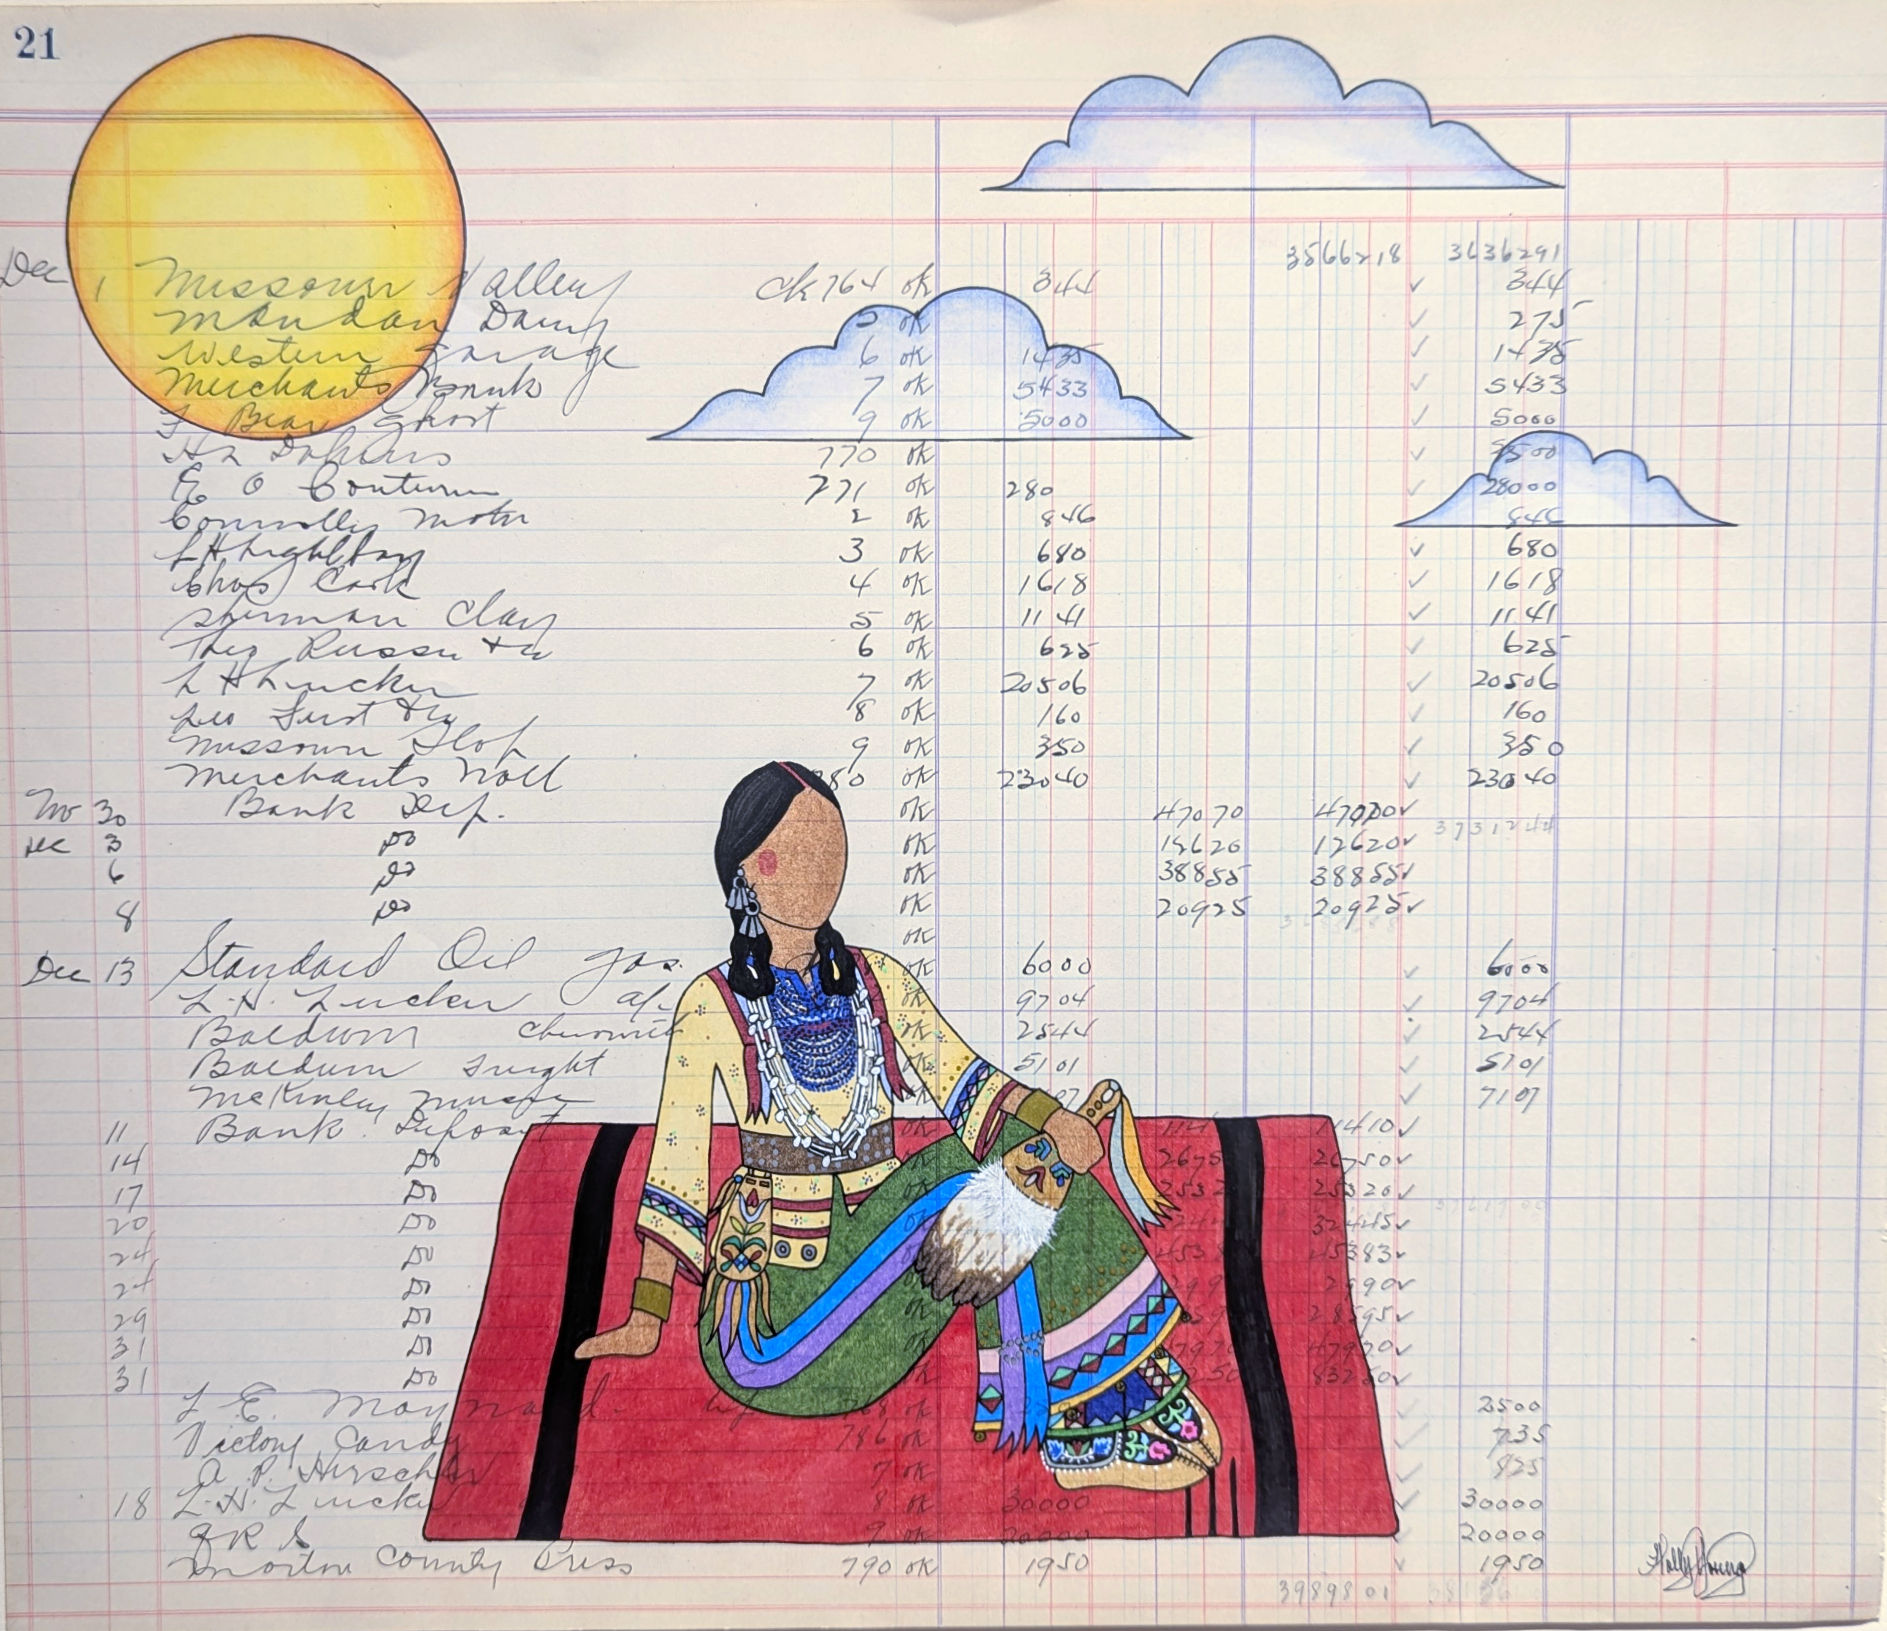 21
3566218 3636291
Dec 1 Missouri Valley ck 764 ok 844 ✓ 844
Mandan Dairy 5 ok ✓ 275
Western Garage 6 ok 1435 ✓ 1435
Merchants Bank 7 ok 5433 ✓ 5433
Bear Ghost 9 ok 5000 ✓ 5000
770 ok ✓
E O 771 ok 280 ✓ 28000
Connolly Motor 2 ok 846 ✓ 846
3 ok 680 ✓ 680
Chas 4 ok 1618 ✓ 1618
Sherman Clay 5 ok 1141 ✓ 1141
6 ok 625 ✓ 625
L H Lucker 7 ok 20506 ✓ 20506
8 ok 160 ✓ 160
Missouri Slop 9 ok 350 ✓ 350
Merchants Natl 780 ok 23040 ✓ 23040
Nov 30 Bank Dep. ok 47070 ✓
Dec 3 Do ok 12620 12620 ✓ 3731244
6 Do ok 38855 38855 ✓
8 Do ok 20925 20925 ✓
ok
Dec 13 Standard Oil gas. ok 6000 ✓ 6000
L. H. Lucker ok 9704 ✓ 9704
Baldwin ok 2544 ✓ 2544
Baldwin Freight ok 5101 ✓ 5101
McKinley Music ✓ 7107
11 Bank Deposit ok 11410 ✓
14 Do 2675 26750 ✓
17 Do ok 2532 25320 ✓
20 Do 32445 ✓
24 Do 4538 45383 ✓
24 Do 299 2990 ✓
29 Do ok 28595 ✓
31 Do ok 7970 47970 ✓
31 Do ok 250 83250 ✓
L E. Maynard 768 ok ✓ 2500
Victory Candy 786 ok ✓ 735
A. P. Hirschler 7 ok ✓ 825
18 L. H. Lucker 8 ok 30000 ✓ 30000
9 ok 20000 ✓ 20000
Morton County Press 790 ok 1950 ✓ 1950
3989801
Holly Young